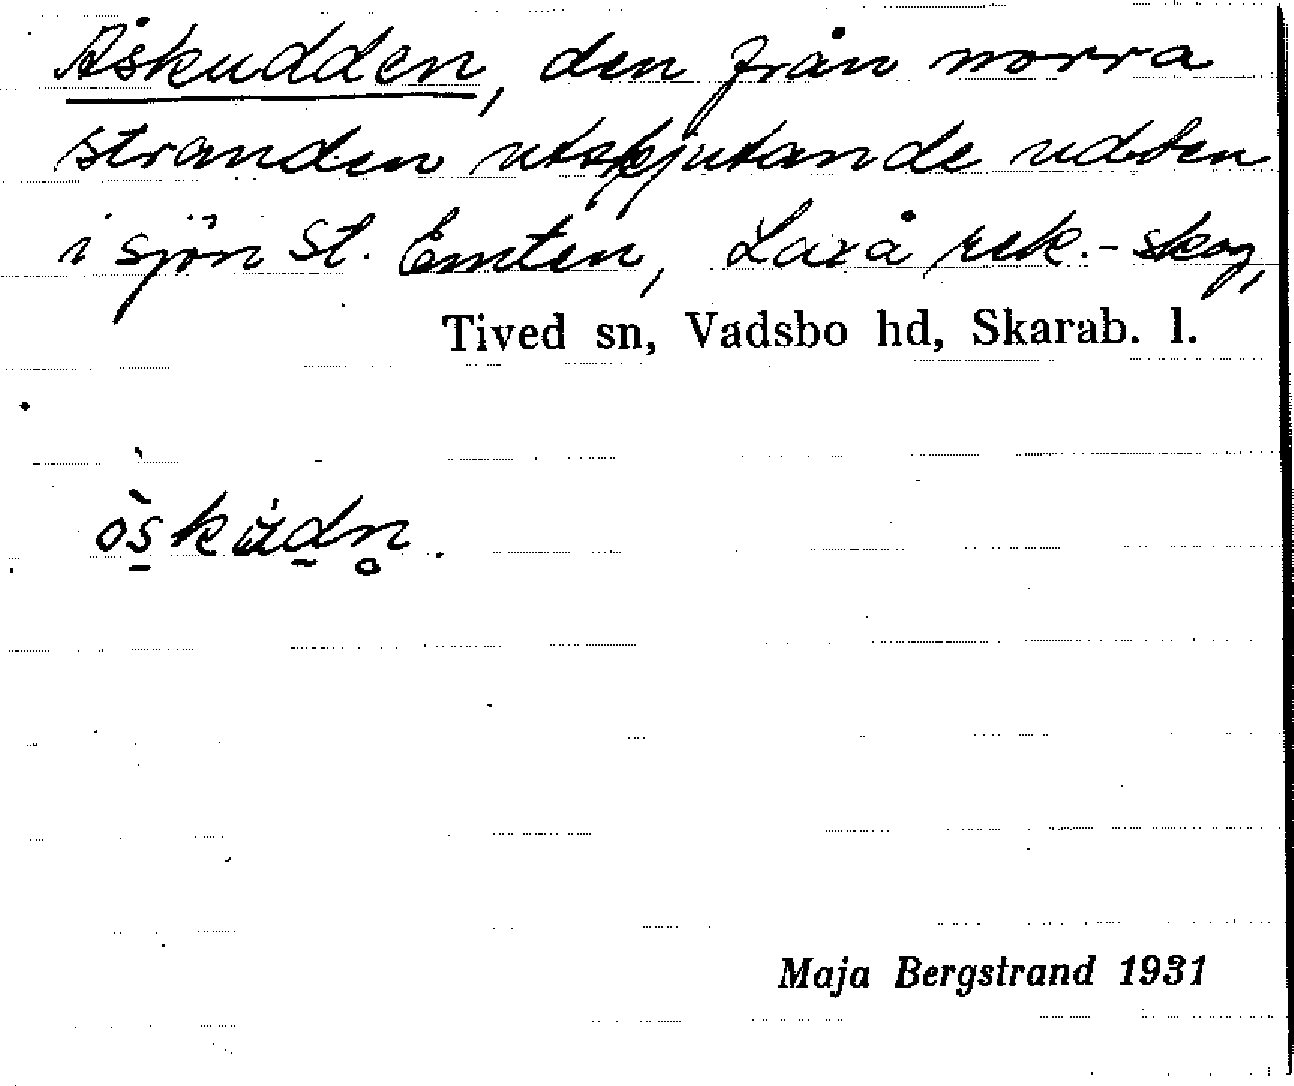 Åskudden, den från norra
stranden utskjutande udden
i sjön St. Emten, Laxå rek.-skog,
Tived sn, Vadsbo hd, Skarab. l.
Maja Bergstrand 1931